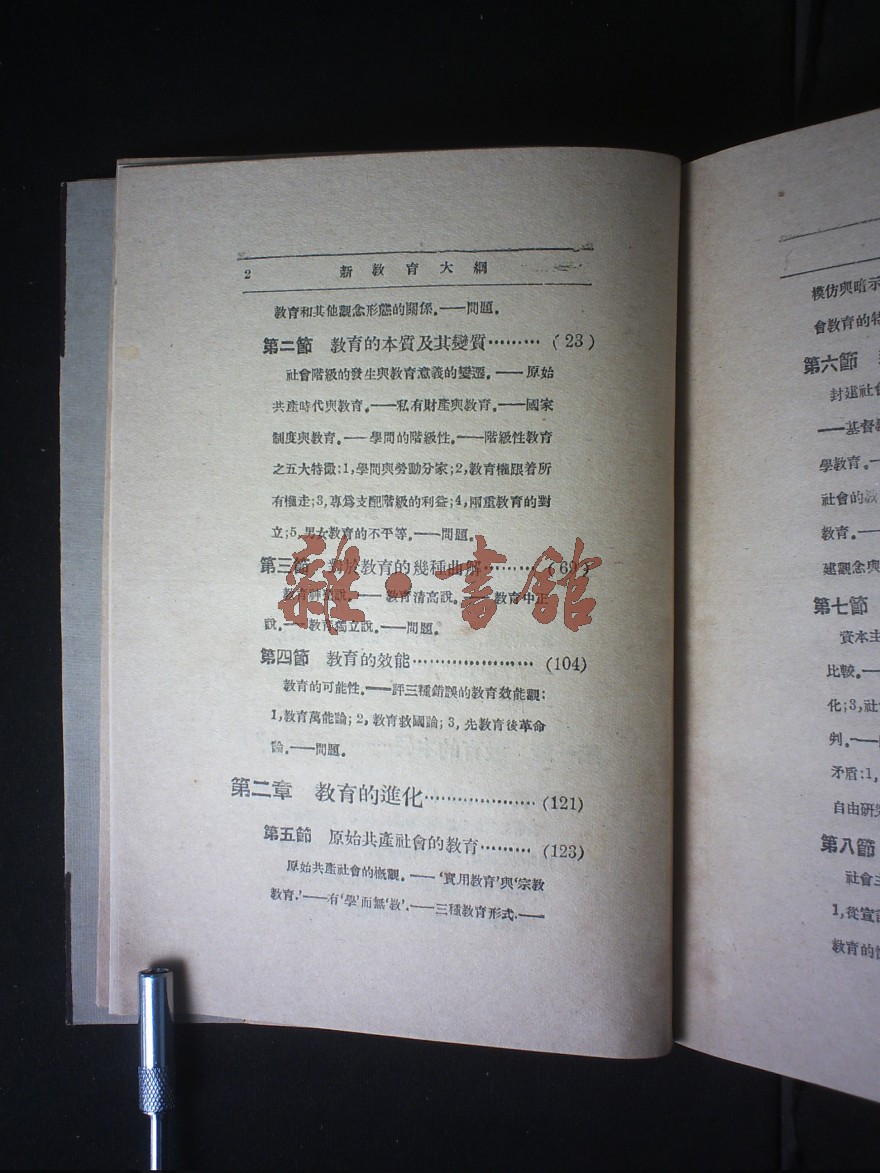 2 新教育大綱
教育和其他觀念形態的關係。——問題。
第二節 教育的本質及其變質………(23)
社會階級的發生與教育意義的變遷。——原始
共產時代與教育。——私有財產與教育。——國家
制度與教育。——學問的階級性。——階級性教育
之五大特徵:1,學問與勞動分家;2,教育權跟着所
有權走;3,專爲支配階級的利益;4,兩重教育的對
立;5,男女教育的不平等。——問題。
第三節 對於教育的幾種曲解………(69)
教育神聖說。——教育清高說。——教育中正
說。——教育獨立說。——問題。
雜·書館
第四節 教育的效能…………………(104)
教育的可能性。——評三種錯誤的教育效能觀:
1,教育萬能論;2,教育救國論;3,先教育後革命
論。——問題。
第二章 教育的進化…………………(121)
第五節 原始共產社會的教育………(123)
原始共產社會的概觀。——‘實用教育’與‘宗教
教育.’——有‘學’而無‘教’.——三種教育形式.——
模仿與暗示
會教育的特
第六節
封建社會
——基督教
學教育。—
社會的教
教育。——
建觀念與
第七節
資本主
比較。——
化;3,社
判。——
矛盾:1,
自由研究
第八節
社會主
1,從宣言
教育的性